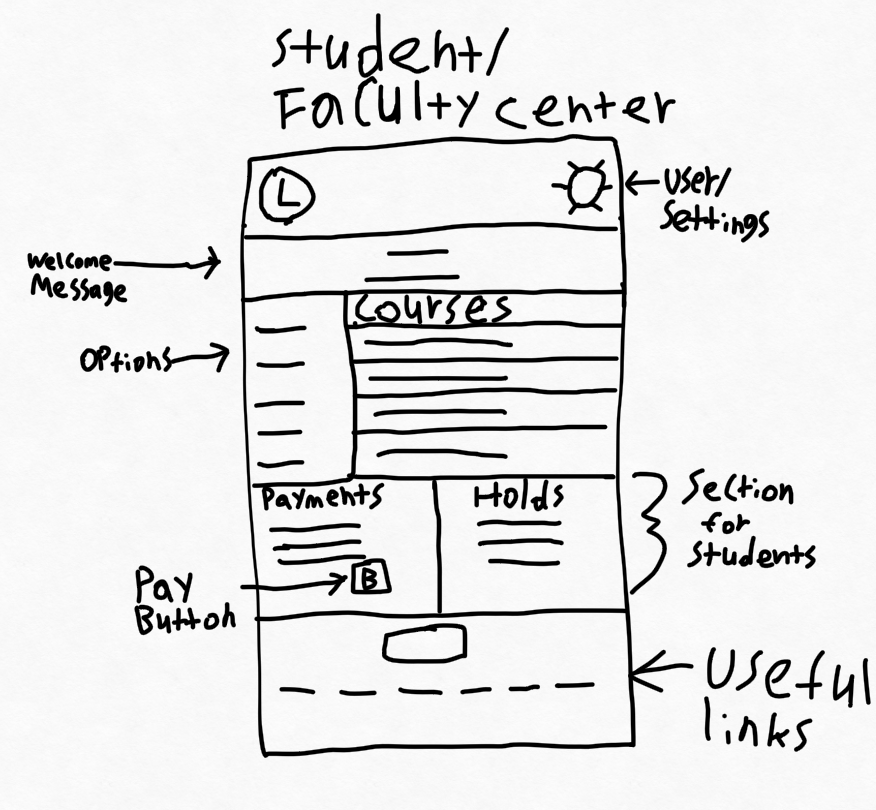 Student/
Faculty center
L
User/
Settings
Welcome
Message
Courses
Options
Payments
Holds
Section
for
students
Pay
Button
B
Useful
links